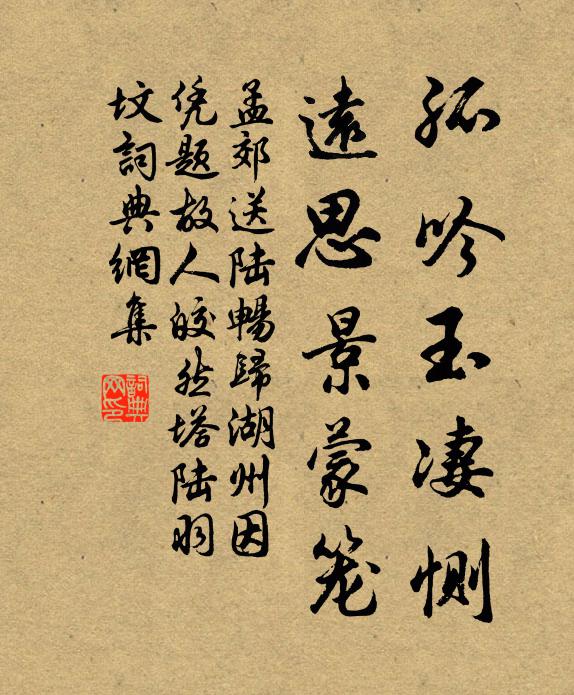 孤吟玉凄惻
遠思景蒙笼
孟郊送陆暢歸湖州因
凭题故人皎然塔陆羽
坟詞典網集
詞典
网印